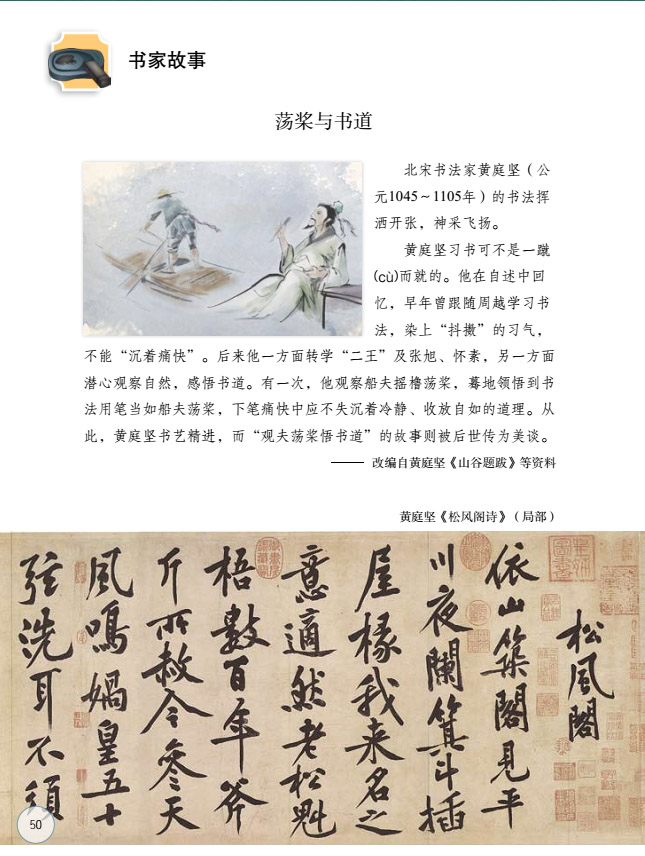 书家故事
荡桨与书道
北宋书法家黄庭坚（公
元1045～1105年）的书法挥
洒开张，神采飞扬。
黄庭坚习书可不是一蹴
(cù)而就的。他在自述中回
忆，早年曾跟随周越学习书
法，染上“抖擞”的习气，
不能“沉着痛快”。后来他一方面转学“二王”及张旭、怀素，另一方面
潜心观察自然，感悟书道。有一次，他观察船夫摇橹荡桨，蓦地领悟到书
法用笔当如船夫荡桨，下笔痛快中应不失沉着冷静、收放自如的道理。从
此，黄庭坚书艺精进，而“观夫荡桨悟书道”的故事则被后世传为美谈。
—— 改编自黄庭坚《山谷题跋》等资料
黄庭坚《松风阁诗》（局部）
松風閣
依山築閣見平
川夜闌箕斗插
屋椽我来名之
意適然老松魁
梧數百年斧
斤所赦令参天
風鳴媧皇五十
弦洗耳不須
50